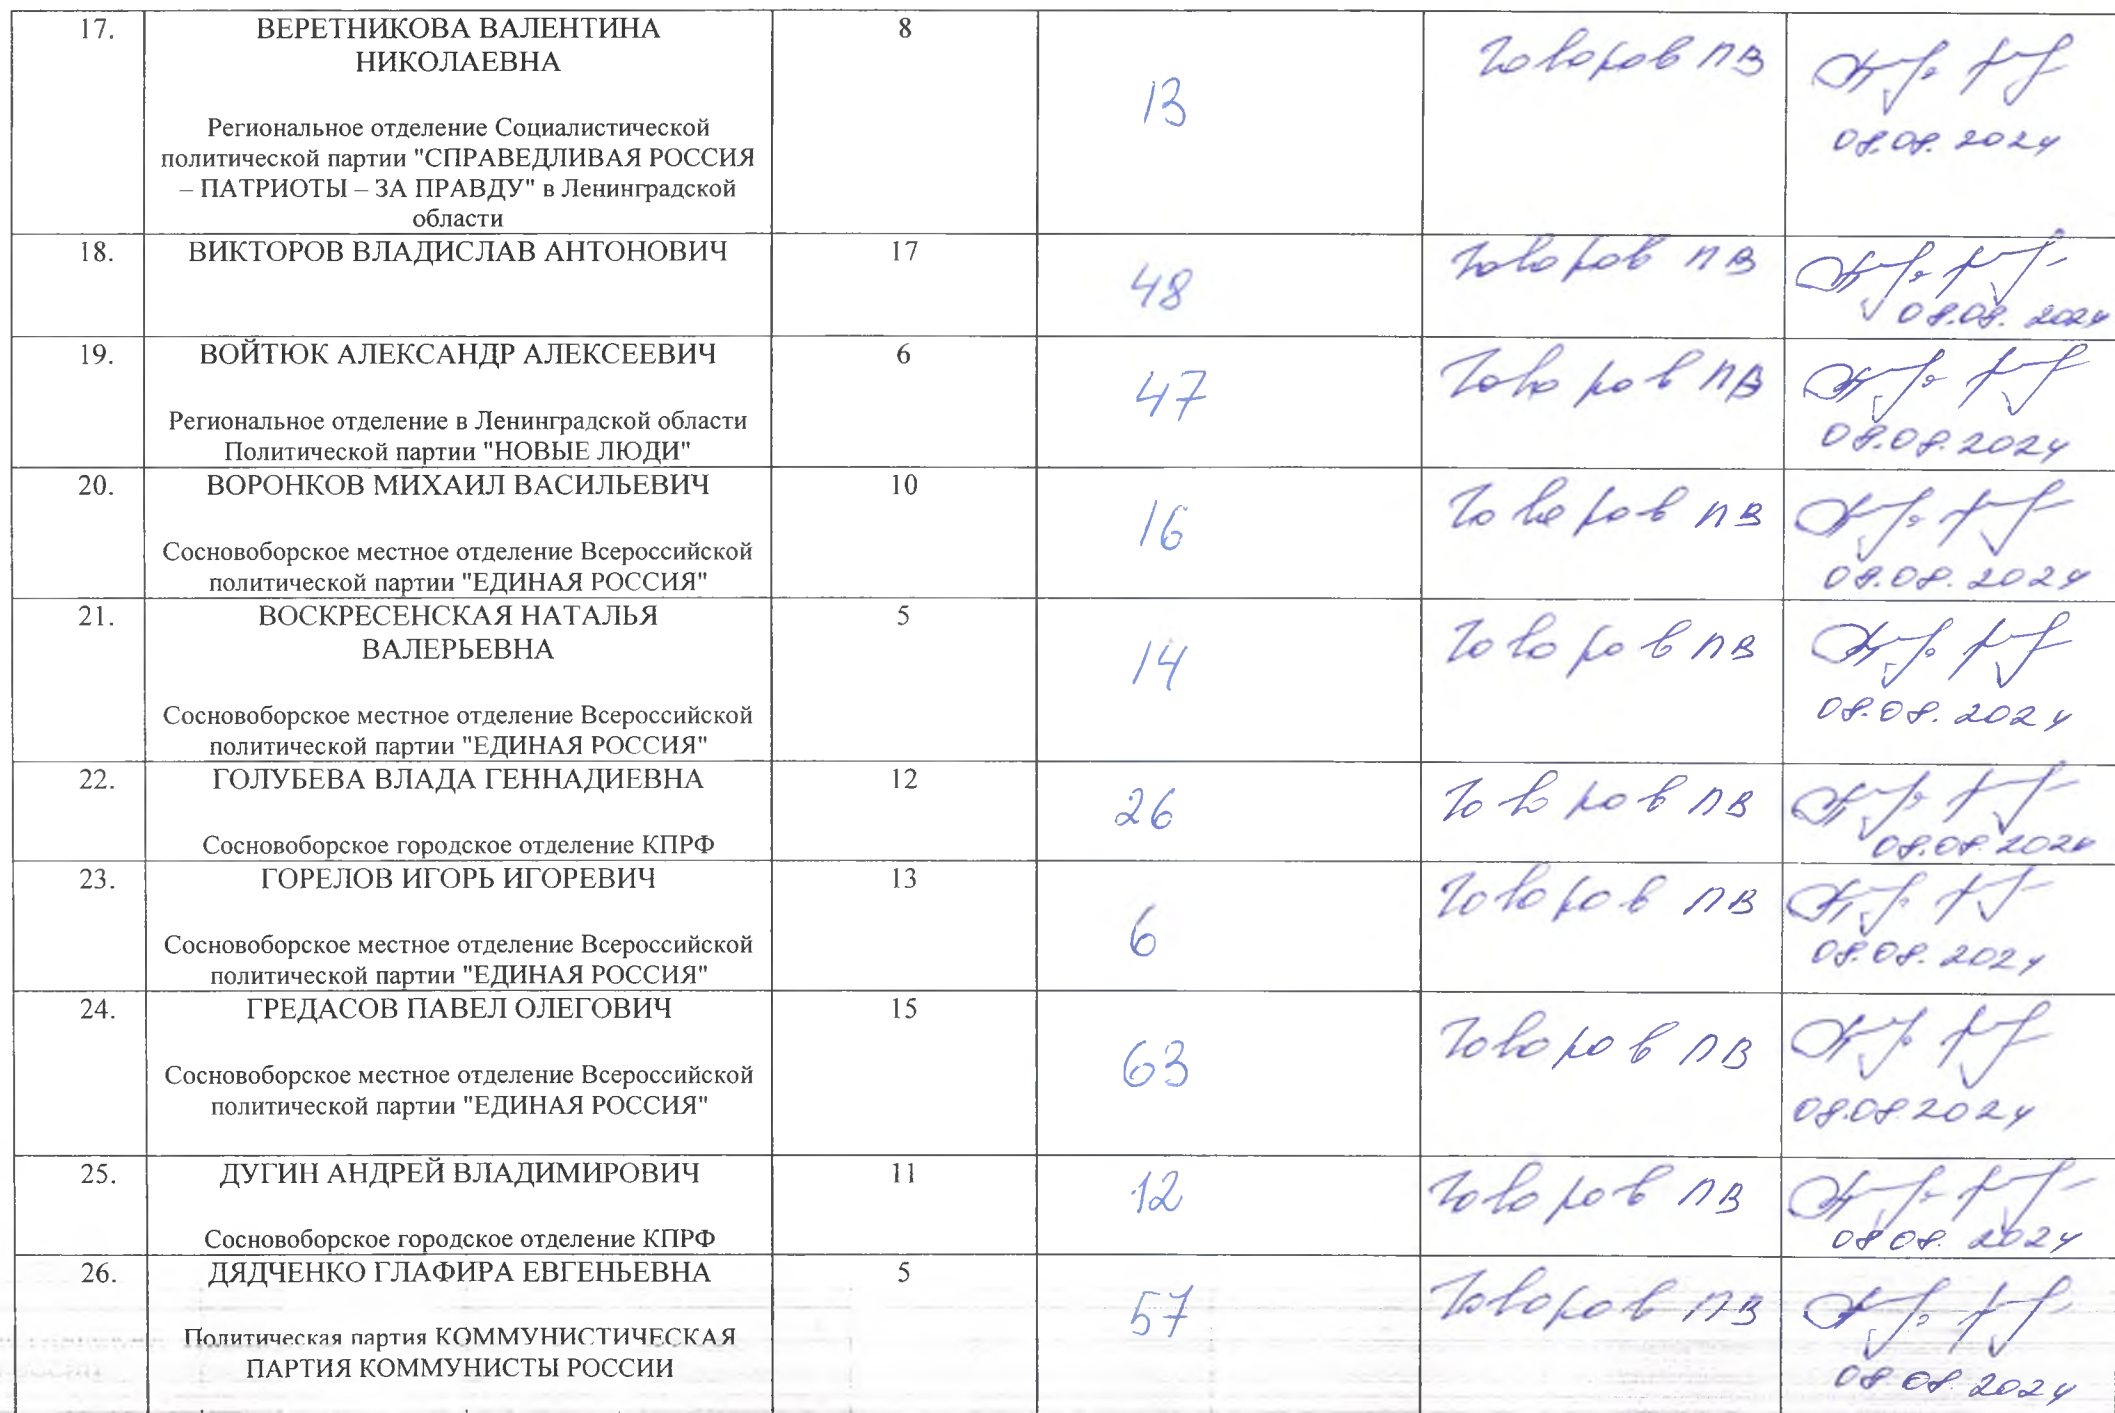 17. ВЕРЕТНИКОВА ВАЛЕНТИНА 8
НИКОЛАЕВНА
Региональное отделение Социалистической
политической партии "СПРАВЕДЛИВАЯ РОССИЯ
– ПАТРИОТЫ – ЗА ПРАВДУ" в Ленинградской
области
13
Говоров ПВ
08.08.2024
18. ВИКТОРОВ ВЛАДИСЛАВ АНТОНОВИЧ 17
48
Говоров ПВ
08.08.2024
19. ВОЙТЮК АЛЕКСАНДР АЛЕКСЕЕВИЧ 6
Региональное отделение в Ленинградской области
Политической партии "НОВЫЕ ЛЮДИ"
47
Говоров ПВ
08.08.2024
20. ВОРОНКОВ МИХАИЛ ВАСИЛЬЕВИЧ 10
Сосновоборское местное отделение Всероссийской
политической партии "ЕДИНАЯ РОССИЯ"
16
Говоров ПВ
08.08.2024
21. ВОСКРЕСЕНСКАЯ НАТАЛЬЯ 5
ВАЛЕРЬЕВНА
Сосновоборское местное отделение Всероссийской
политической партии "ЕДИНАЯ РОССИЯ"
14
Говоров ПВ
08.08.2024
22. ГОЛУБЕВА ВЛАДА ГЕННАДИЕВНА 12
Сосновоборское городское отделение КПРФ
26
Говоров ПВ
08.08.2024
23. ГОРЕЛОВ ИГОРЬ ИГОРЕВИЧ 13
Сосновоборское местное отделение Всероссийской
политической партии "ЕДИНАЯ РОССИЯ"
6
Говоров ПВ
08.08.2024
24. ГРЕДАСОВ ПАВЕЛ ОЛЕГОВИЧ 15
Сосновоборское местное отделение Всероссийской
политической партии "ЕДИНАЯ РОССИЯ"
63
Говоров ПВ
08.08.2024
25. ДУГИН АНДРЕЙ ВЛАДИМИРОВИЧ 11
Сосновоборское городское отделение КПРФ
12
Говоров ПВ
08.08.2024
26. ДЯДЧЕНКО ГЛАФИРА ЕВГЕНЬЕВНА 5
Политическая партия КОММУНИСТИЧЕСКАЯ
ПАРТИЯ КОММУНИСТЫ РОССИИ
57
Говоров ПВ
08.08.2024